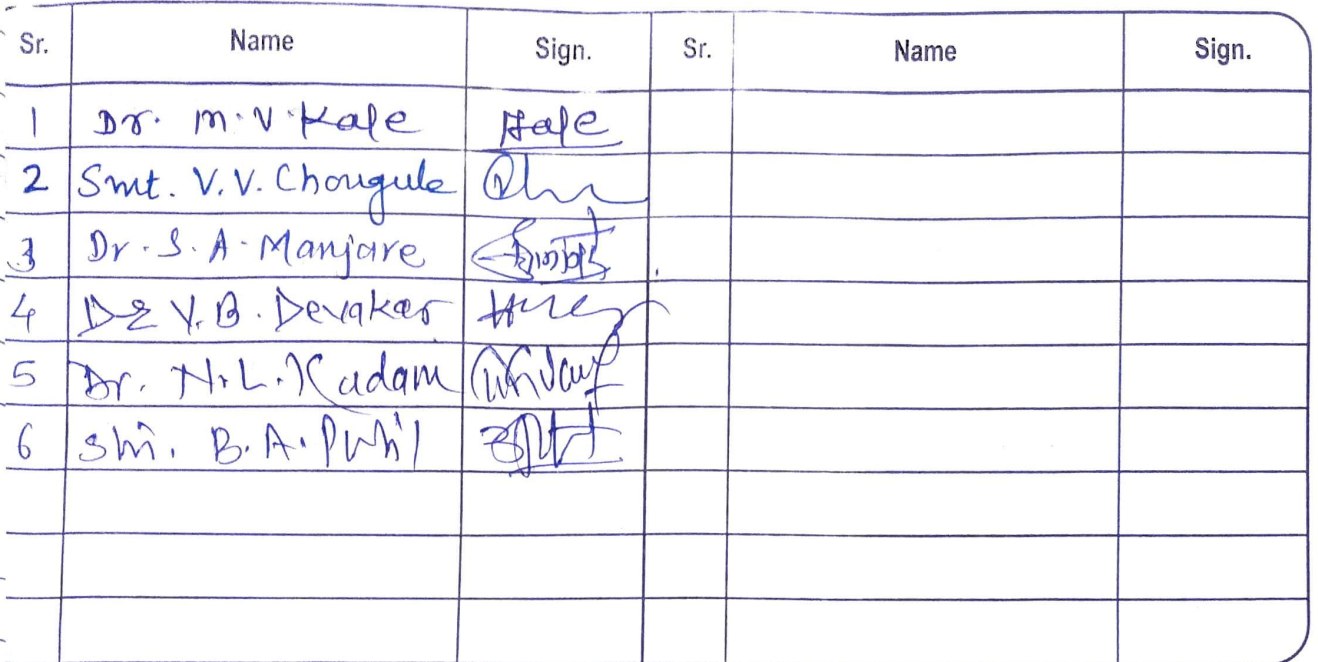 Sr. Name Sign. Sr. Name Sign.
1 Dr. M.V. Kale Kale
2 Smt. V.V. Chougule
3 Dr. S. A. Manjare
4 Dr V. B. Devakar
5 Dr. N. L. Kadam
6 Shri. B. A. Patil